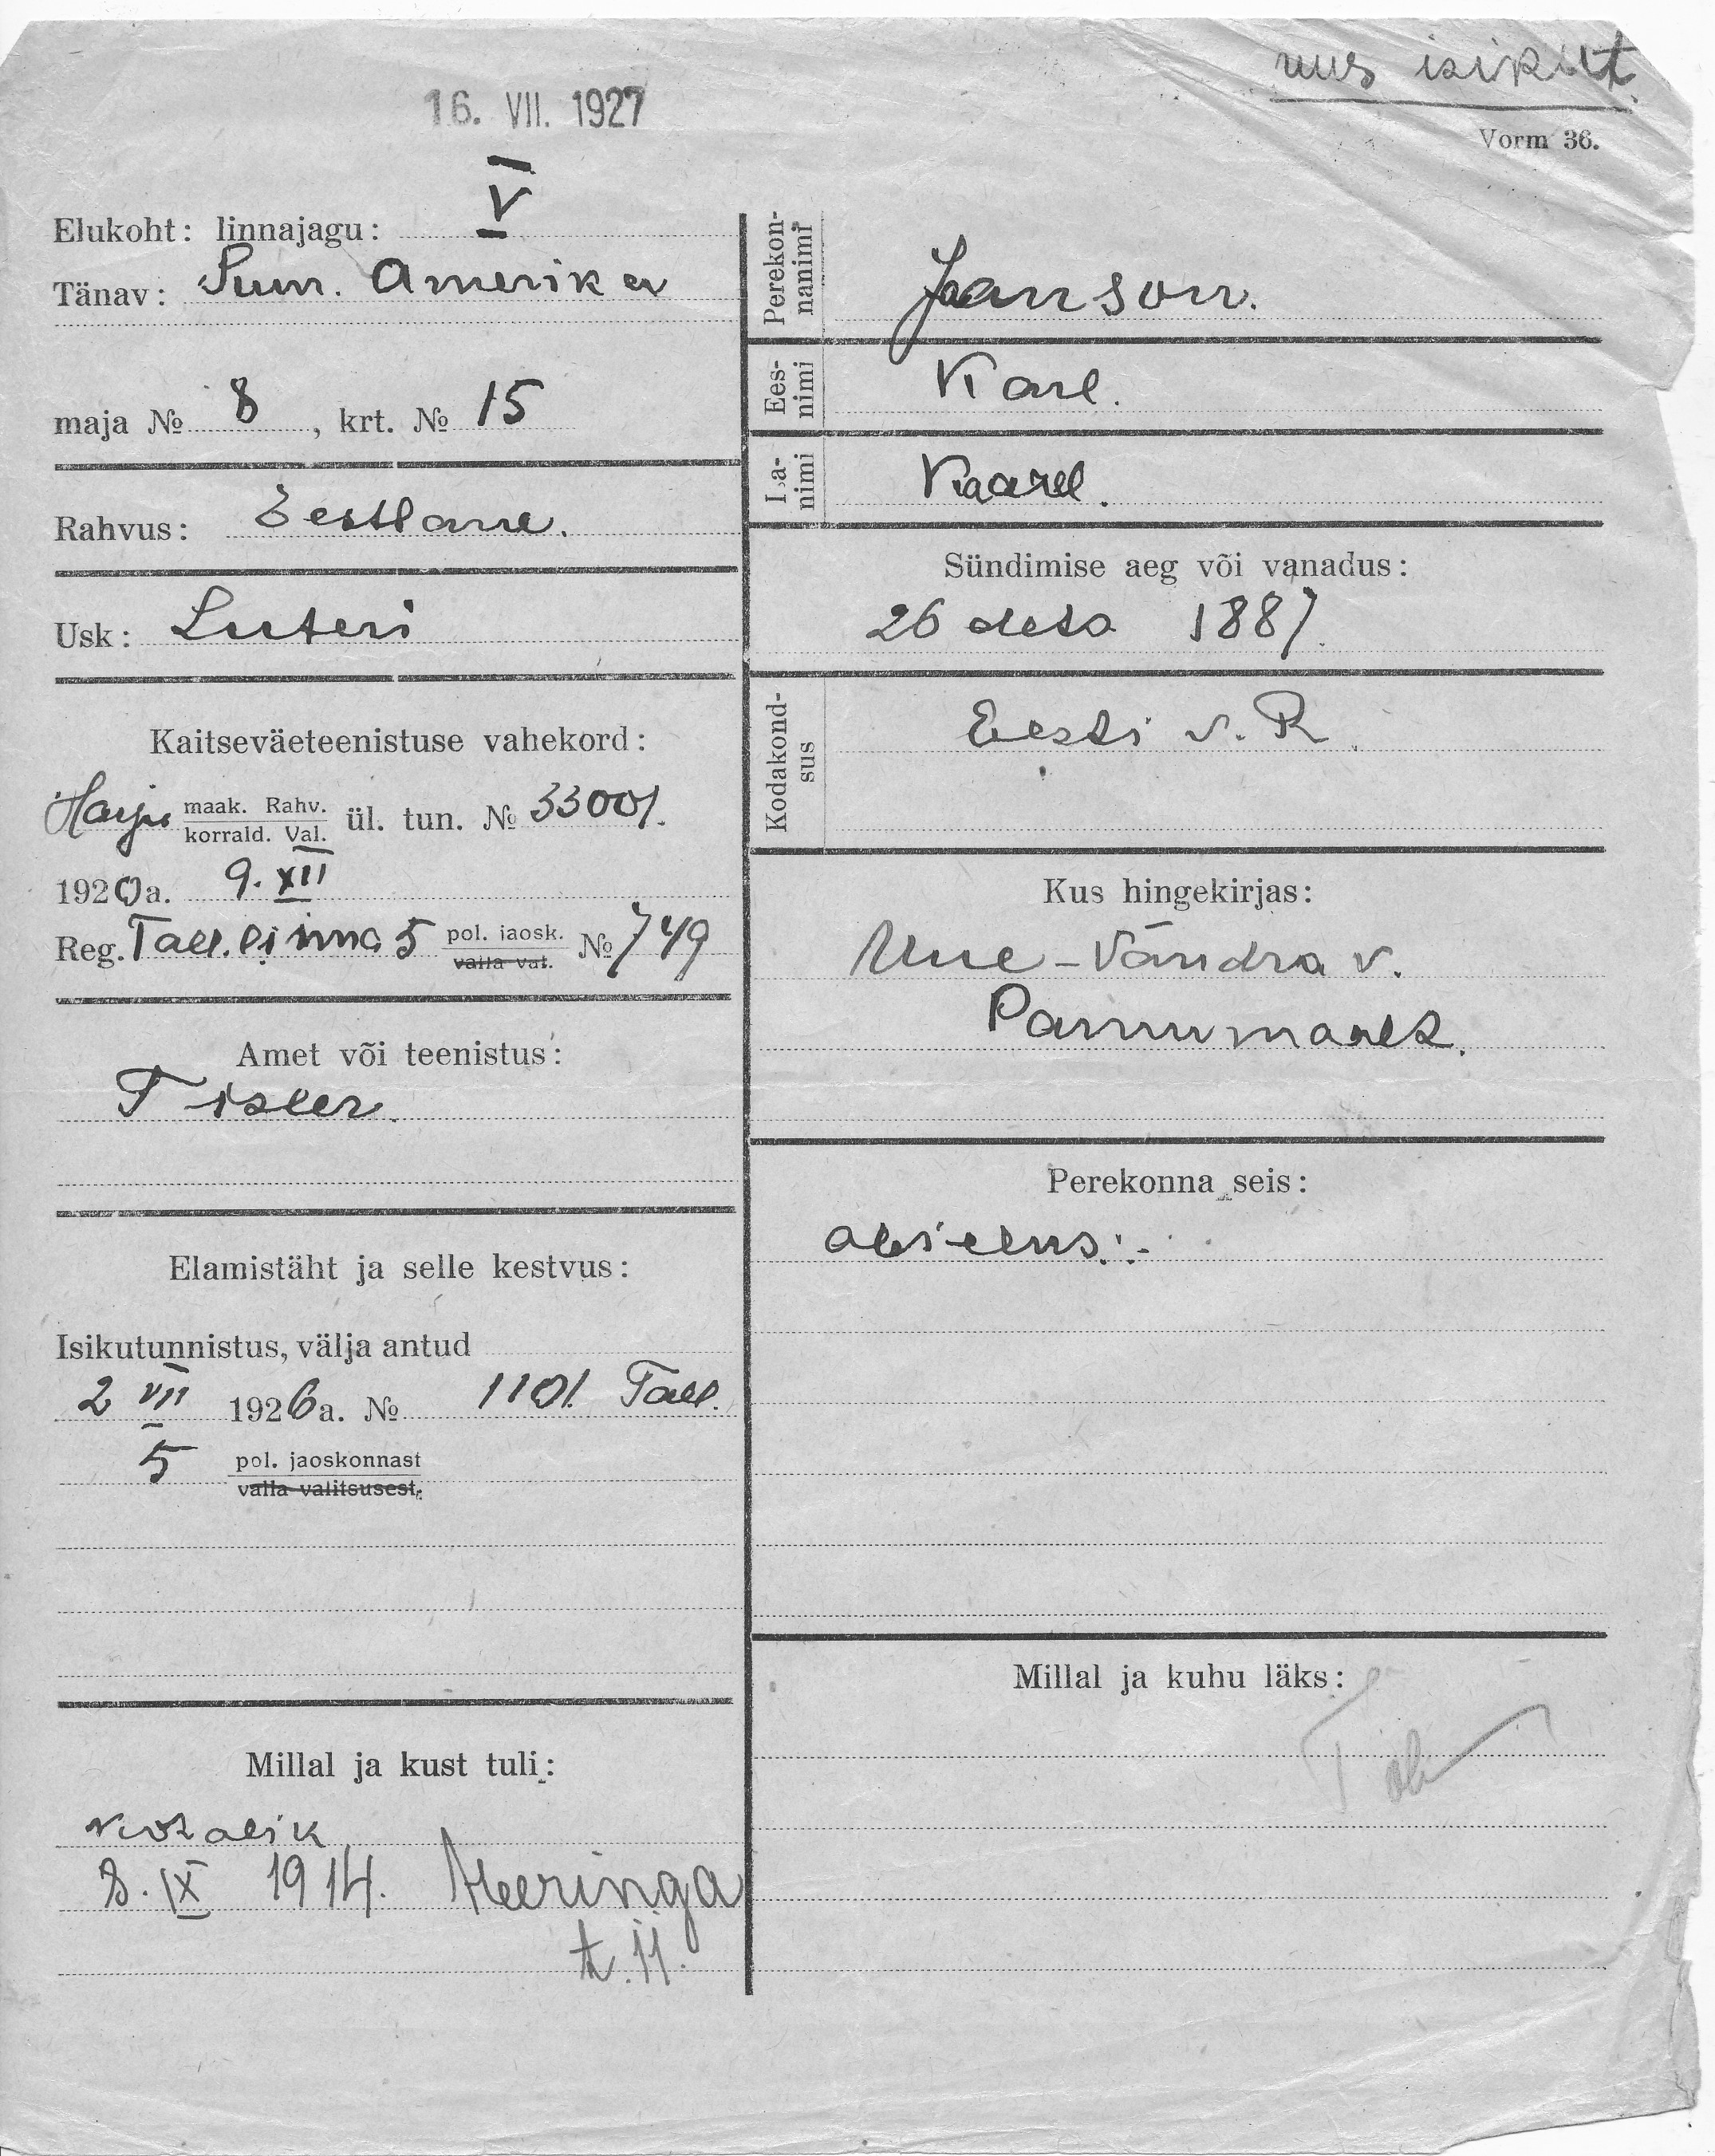 uus isikut.
16. VII. 1927
Vorm 36.
Elukoht: linnajagu: V
Tänav: Suur. Amerika
maja № 8, krt. № 15
Rahvus: Eestlane.
Usk: Luteri
Kaitseväeteenistuse vahekord:
Harju maak. Rahv. korrald. Val. ül. tun. № 33001.
1920 a. 9. XII
Reg. Tall. linna 5 pol. jaosk. valla val. № 749
Amet või teenistus:
Tisler.
Elamistäht ja selle kestvus:
Isikutunnistus, välja antud
2 VII 1926 a. № 1101. Tall.
5 pol. jaoskonnast
valla valitsusest.
Millal ja kust tuli:
kohalik
8. IX 1914. Heeringa
t. 11.
Perekonnanimi Jaanson.
Eesnimi Karl.
Isanimi Kaarel.
Sündimise aeg või vanadus:
26 dets 1887.
Kodakondsus Eesti v. R.
Kus hingekirjas:
Uue-Vändra v.
Pärnumaalt.
Perekonna seis:
abielus.
Millal ja kuhu läks: